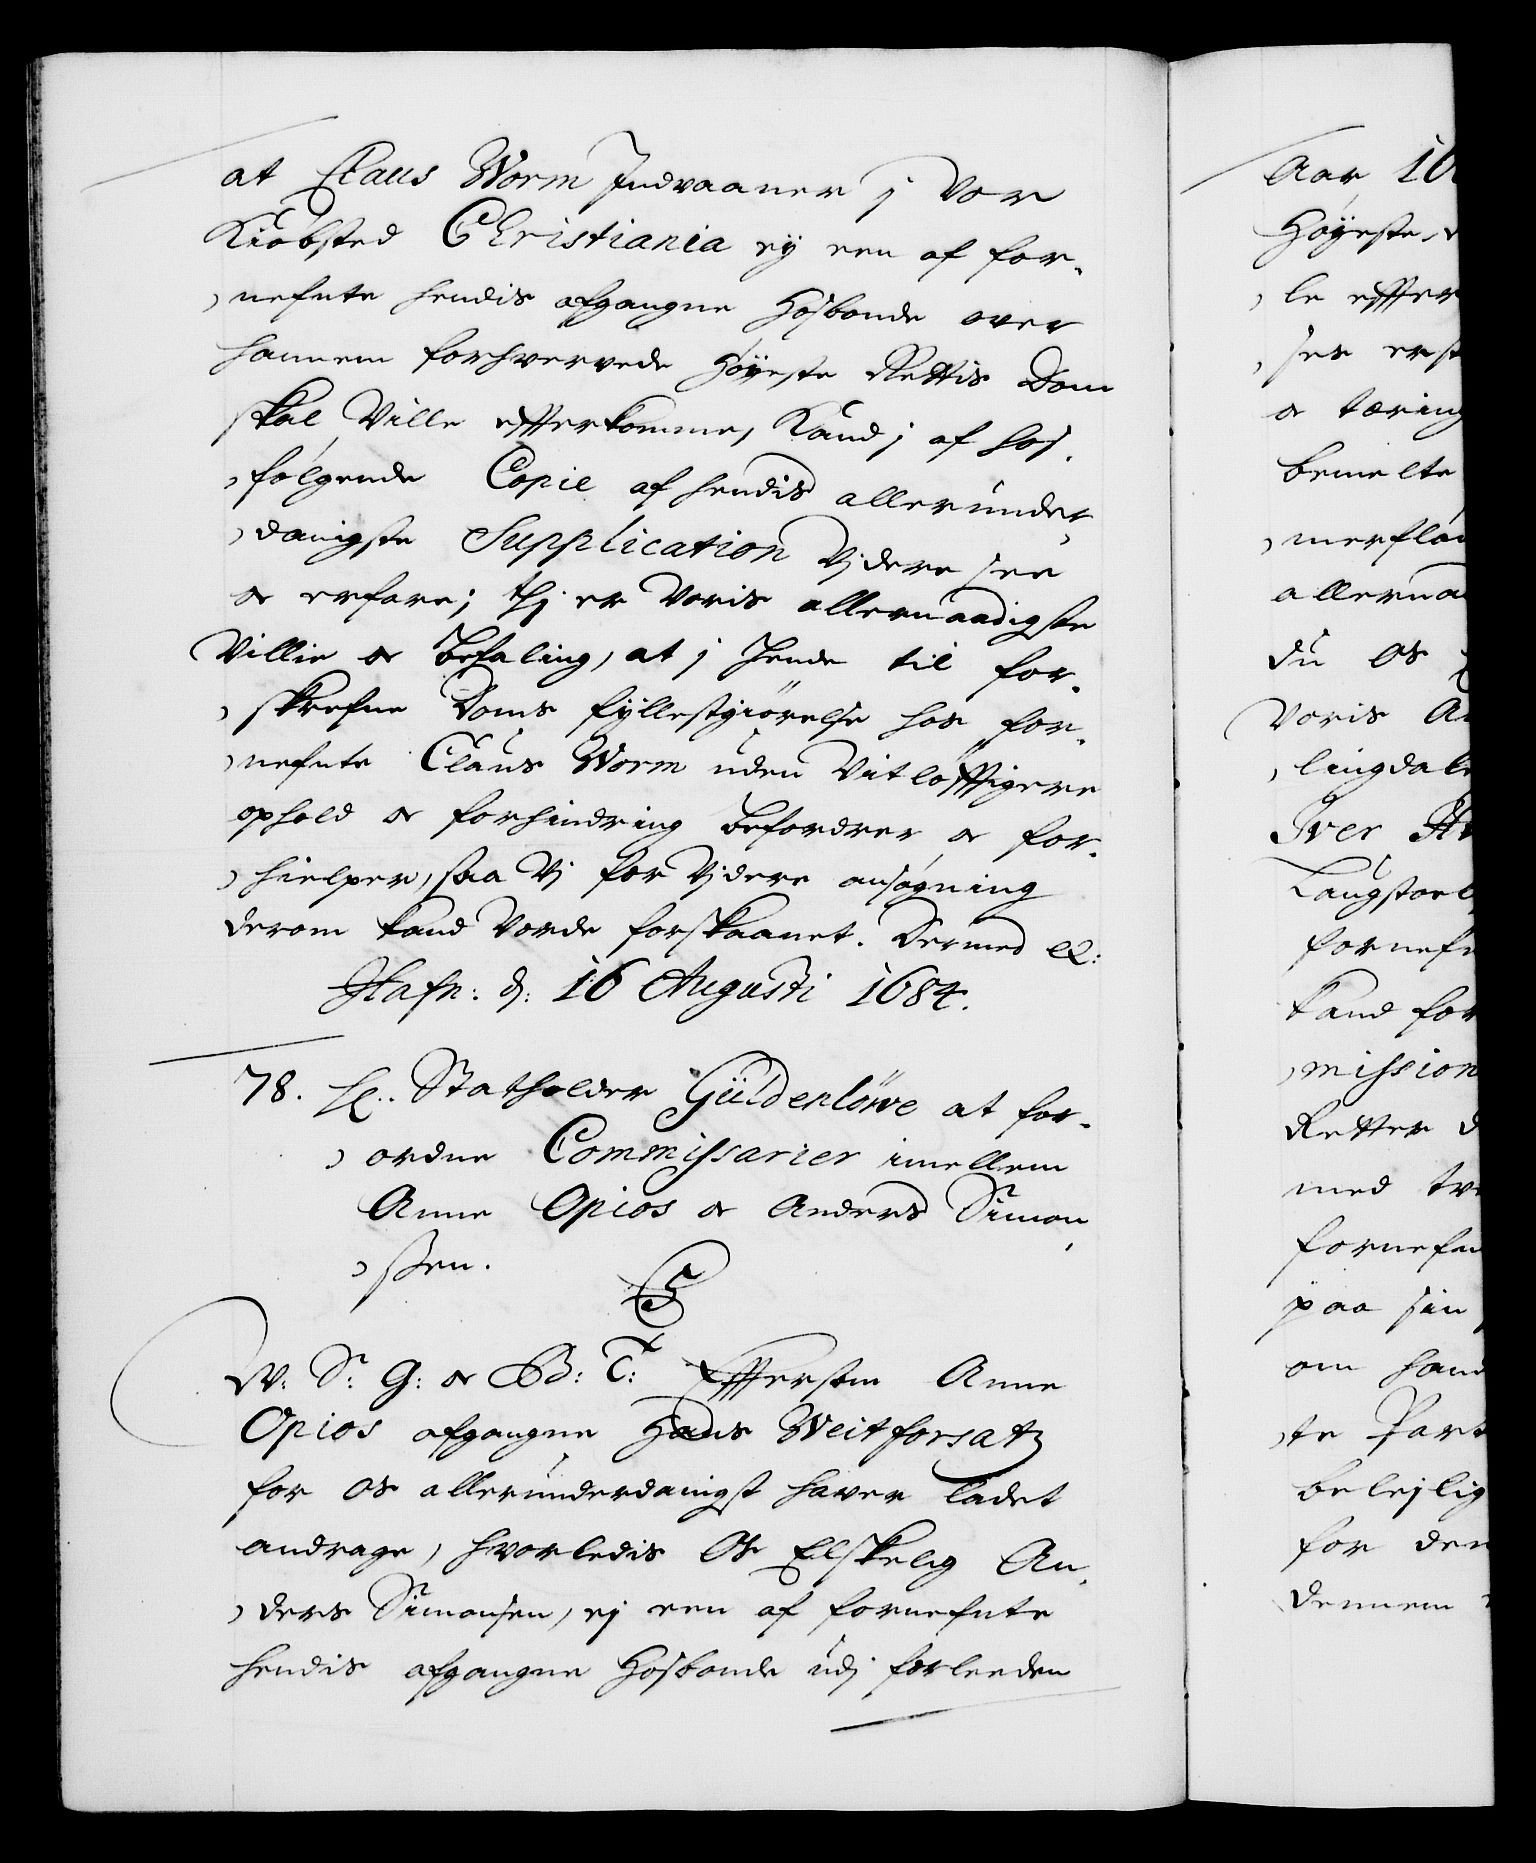 at Claus Worm Indvaaner j Vor
Kiøbsted Christiania ey een af for-
nefnte hendis afgangne Hosbonde over
hannem forhvervede Høyeste Rettis Dom
skal Ville efterkomme, Kand j af hos-
følgende Copie af hendis allerunder
danigste Supplication Vjdere see
og erfare; thj er Voris allernaadigste
Villie og Befaling, at j hende til for-
skrefne Doms fyllestgiörelse hos for-
nefnte Claus Worm uden Vitløfftigere
ophold og forhindring befordrer og for-
hielper, saa Vj for Vjdere ansøgning
derom kand Vorde forskaanet. Dermed etc:
Hafn: d: 16 Augusti 1684.
78. H.. Statholder Güldenlöwe at for-
ordne Commissarier imellem
Anne Opios og Anders Simon
ssen.
C5
W. S: G: og B: T: Effterson Anne
Opios afgangne Hans Weitforsatz
for Os allerunderdanigst haver ladet
andrage, hvorledis Os Elskelig An
ders Simonsen, ej een af fornefnte
hendis afgangne Hosbonde udj forleeden
Aar 16
Høyeste
le effter
sees
og tæring
bemelte
allerna
du Os
Voris
lingdal
Iver
Laugstoel
fornefn
kand for
mission
Retter
med
fornefn
paa sin
om hand
te Part
belejlig
for den
dennem